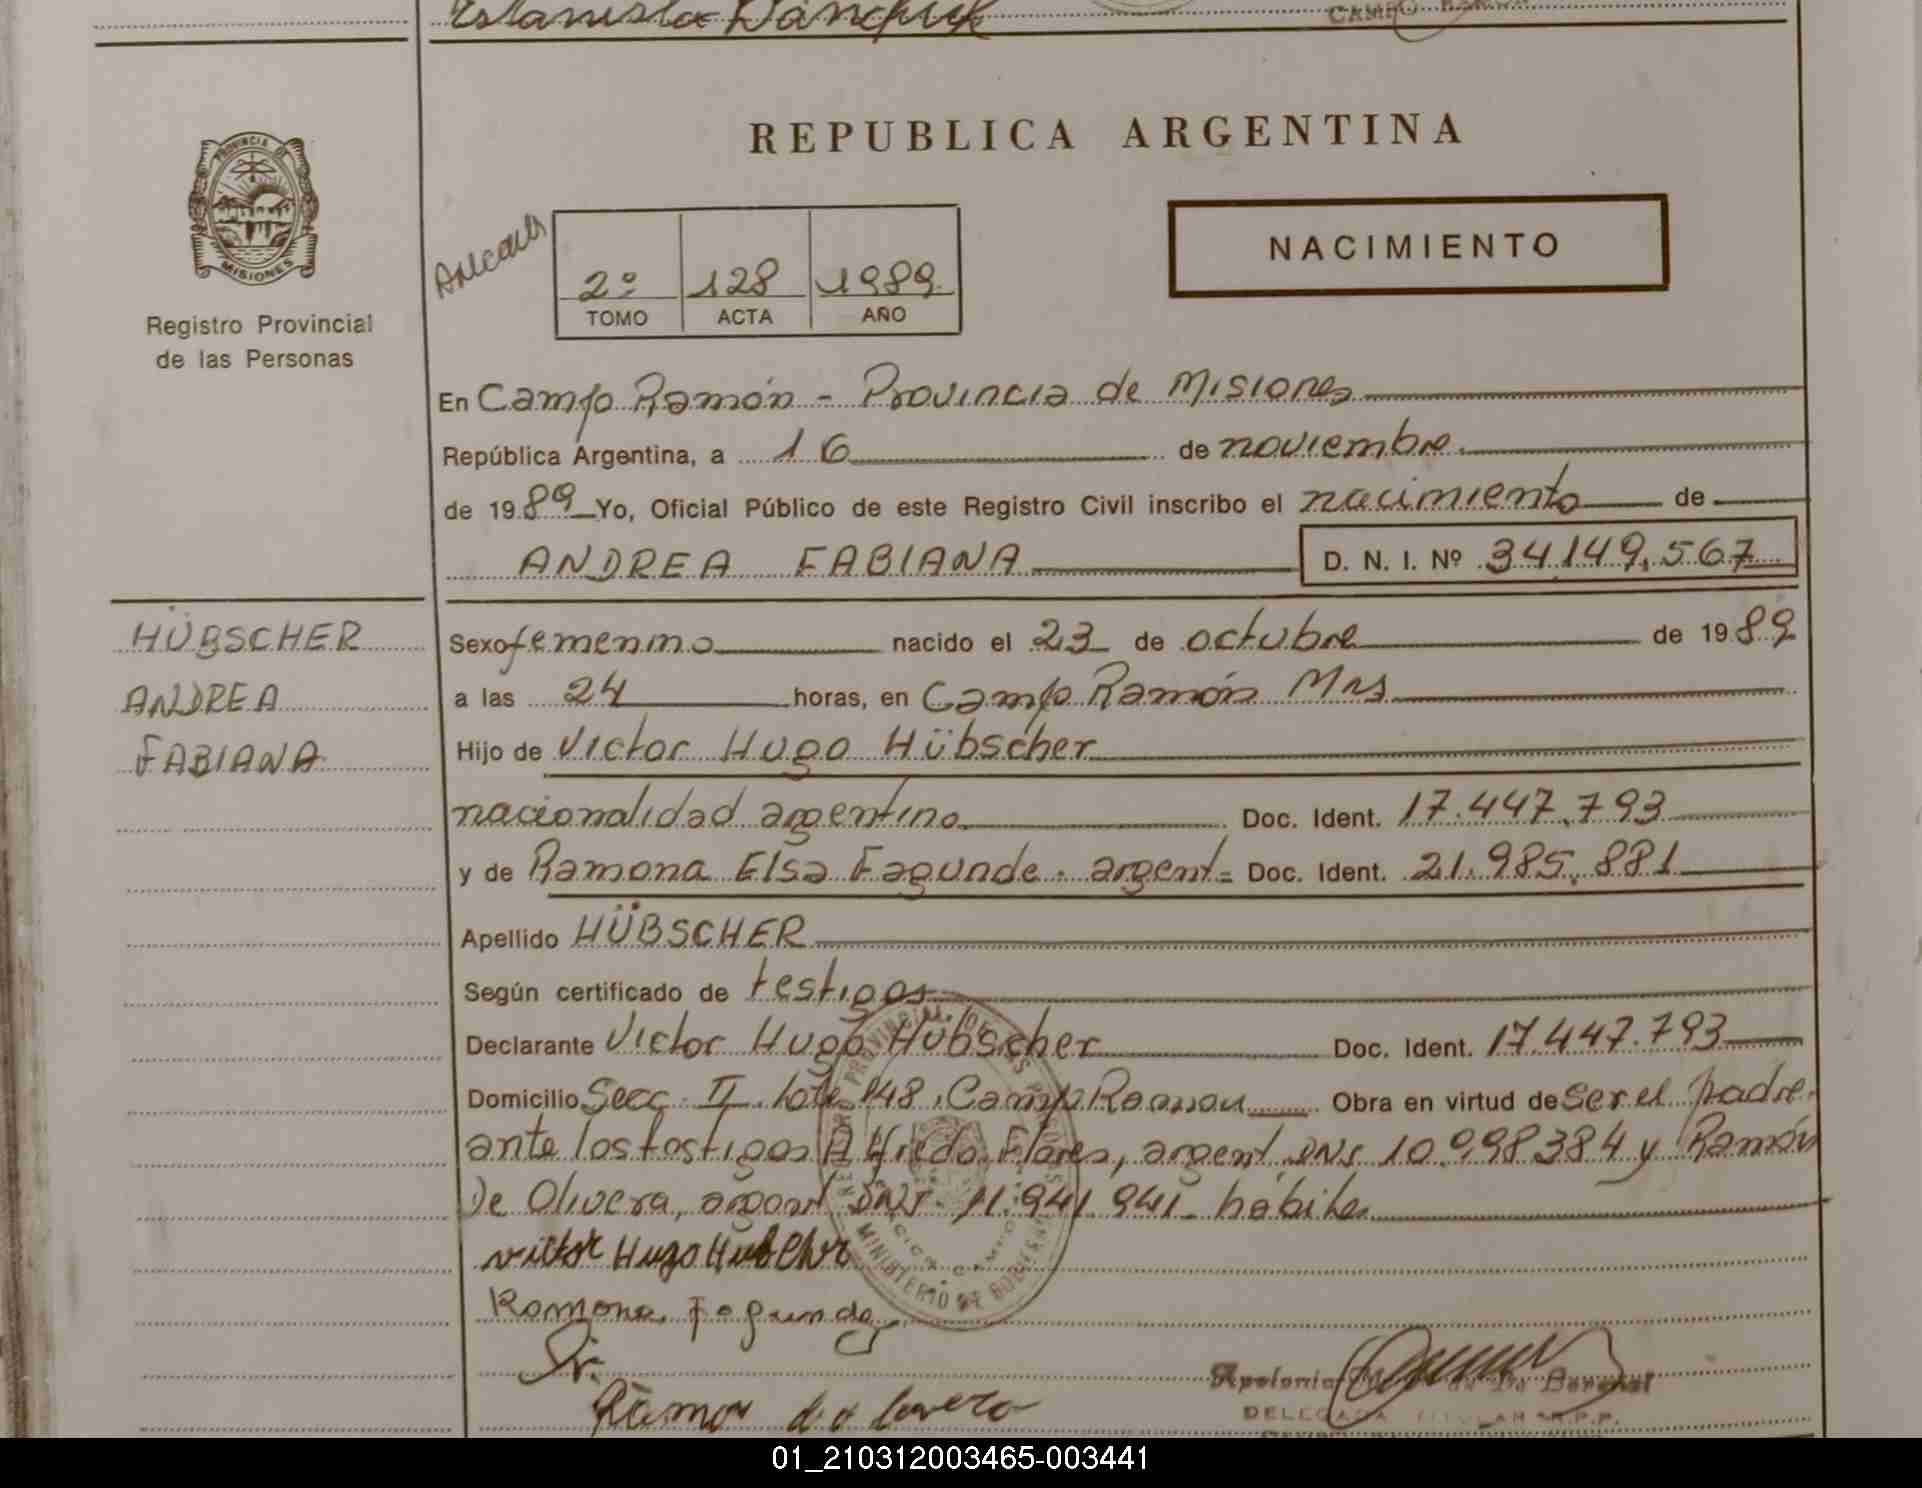 Estanisla
CAMPO RAMON
REPUBLICA ARGENTINA
PROVINCIA DE
MISIONES
Registro Provincial
de las Personas
2º 128 1989
TOMO ACTA AÑO
NACIMIENTO
En Campo Ramón - Provincia de Misiones
República Argentina, a 16 de noviembre
de 1989 Yo, Oficial Público de este Registro Civil inscribo el nacimiento de
ANDREA FABIANA D. N. I. Nº 34.149.567
HÜBSCHER
ANDREA
FABIANA
Sexo femenino nacido el 23 de octubre de 1989
a las 24 horas, en Campo Ramón Mns
Hijo de Victor Hugo Hübscher
nacionalidad argentino Doc. Ident. 17.447.793
y de Ramona Elsa Fagunde - argent- Doc. Ident. 21.985.881
Apellido HÜBSCHER
Según certificado de testigos
Declarante Victor Hugo Hübscher Doc. Ident. 17.447.793
Domicilio Secc. II Lote 148, Campo Ramon Obra en virtud de ser el padre
ante los testigos Alfredo Flores, argent DNI 10.998384 y Ramón
De Olivera, argent DNI 11.941.941 hábiles
MINISTERIO DE GOBIERNO
victor Hugo Hubcher
Ramona Fagunde
Ramon
Apolonia
DELEGADA TITULAR R.P.P.
01_210312003465-003441